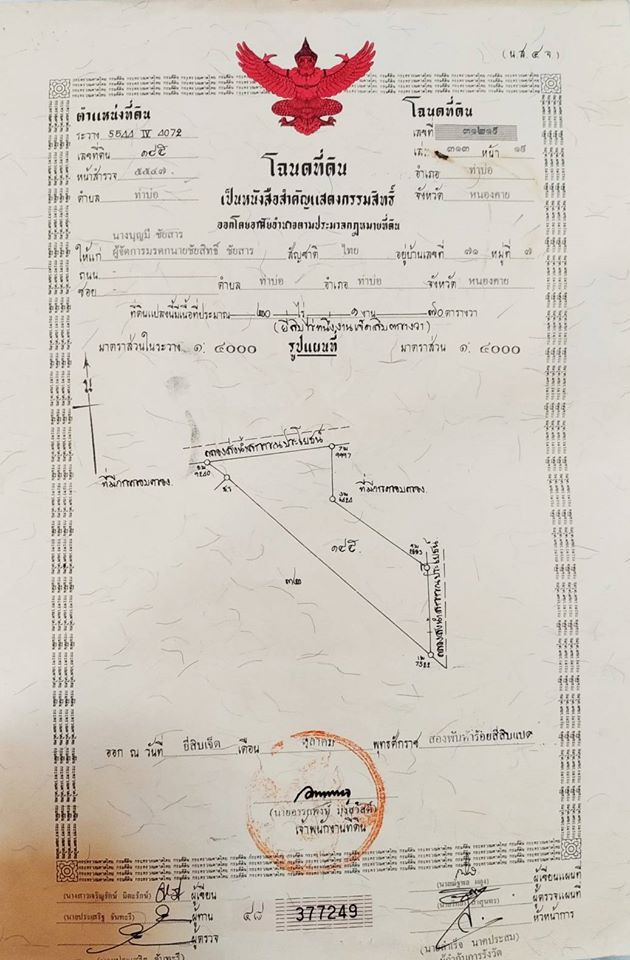 (น.ส. ๔ จ)
ตำแหน่งที่ดิน
ระวาง 5544 IV 4072
เลขที่ดิน ๑๔๕
หน้าสำรวจ ๕๕๔๗
ตำบล ท่าบ่อ
โฉนดที่ดิน
เลขที่ ๓๑๒๑๕
๓๑๓ หน้า ๑๕
อำเภอ ท่าบ่อ
จังหวัด หนองคาย
โฉนดที่ดิน
เป็นหนังสือสำคัญแสดงกรรมสิทธิ์
ออกโดยอาศัยอำนาจตามประมวลกฎหมายที่ดิน
นางบุญมี ชัยสาร
ให้แก่ ผู้จัดการมรดกนายชัยสิทธิ์ ชัยสาร สัญชาติ ไทย อยู่บ้านเลขที่ ๗๑ หมู่ที่ ๗
ถนน
ซอย - ตำบล ท่าบ่อ อำเภอ ท่าบ่อ จังหวัด หนองคาย
ที่ดินแปลงนี้มีเนื้อที่ประมาณ ๒๐ ไร่ ๑ งาน ๗๐ ตารางวา
(ยี่สิบไร่หนึ่งงานเจ็ดสิบตารางวา)
มาตราส่วนในระวาง ๑: ๔๐๐๐ รูปแผนที่ มาตราส่วน ๑: ๔๐๐๐
น
คลองส่งน้ำสาธารณประโยชน์
ที่มีการครอบครอง
ที่มีการครอบครอง
๑๔๕
๓๒
คลองส่งน้ำสาธารณประโยชน์
ออก ณ วันที่ ยี่สิบเจ็ด เดือน ตุลาคม พุทธศักราช สองพันห้าร้อยสี่สิบแปด
เจ้าพนักงานที่ดิน
ผู้เขียน
(นายประเสริฐ จันทะรี) ผู้ทาน
ผู้ตรวจ
(นายประเสริฐ จันทะรี)
๔๘ 377249
ผู้เขียนแผนที่
ผู้ตรวจแผนที่
หัวหน้าการ
ผู้กำกับการรังวัด